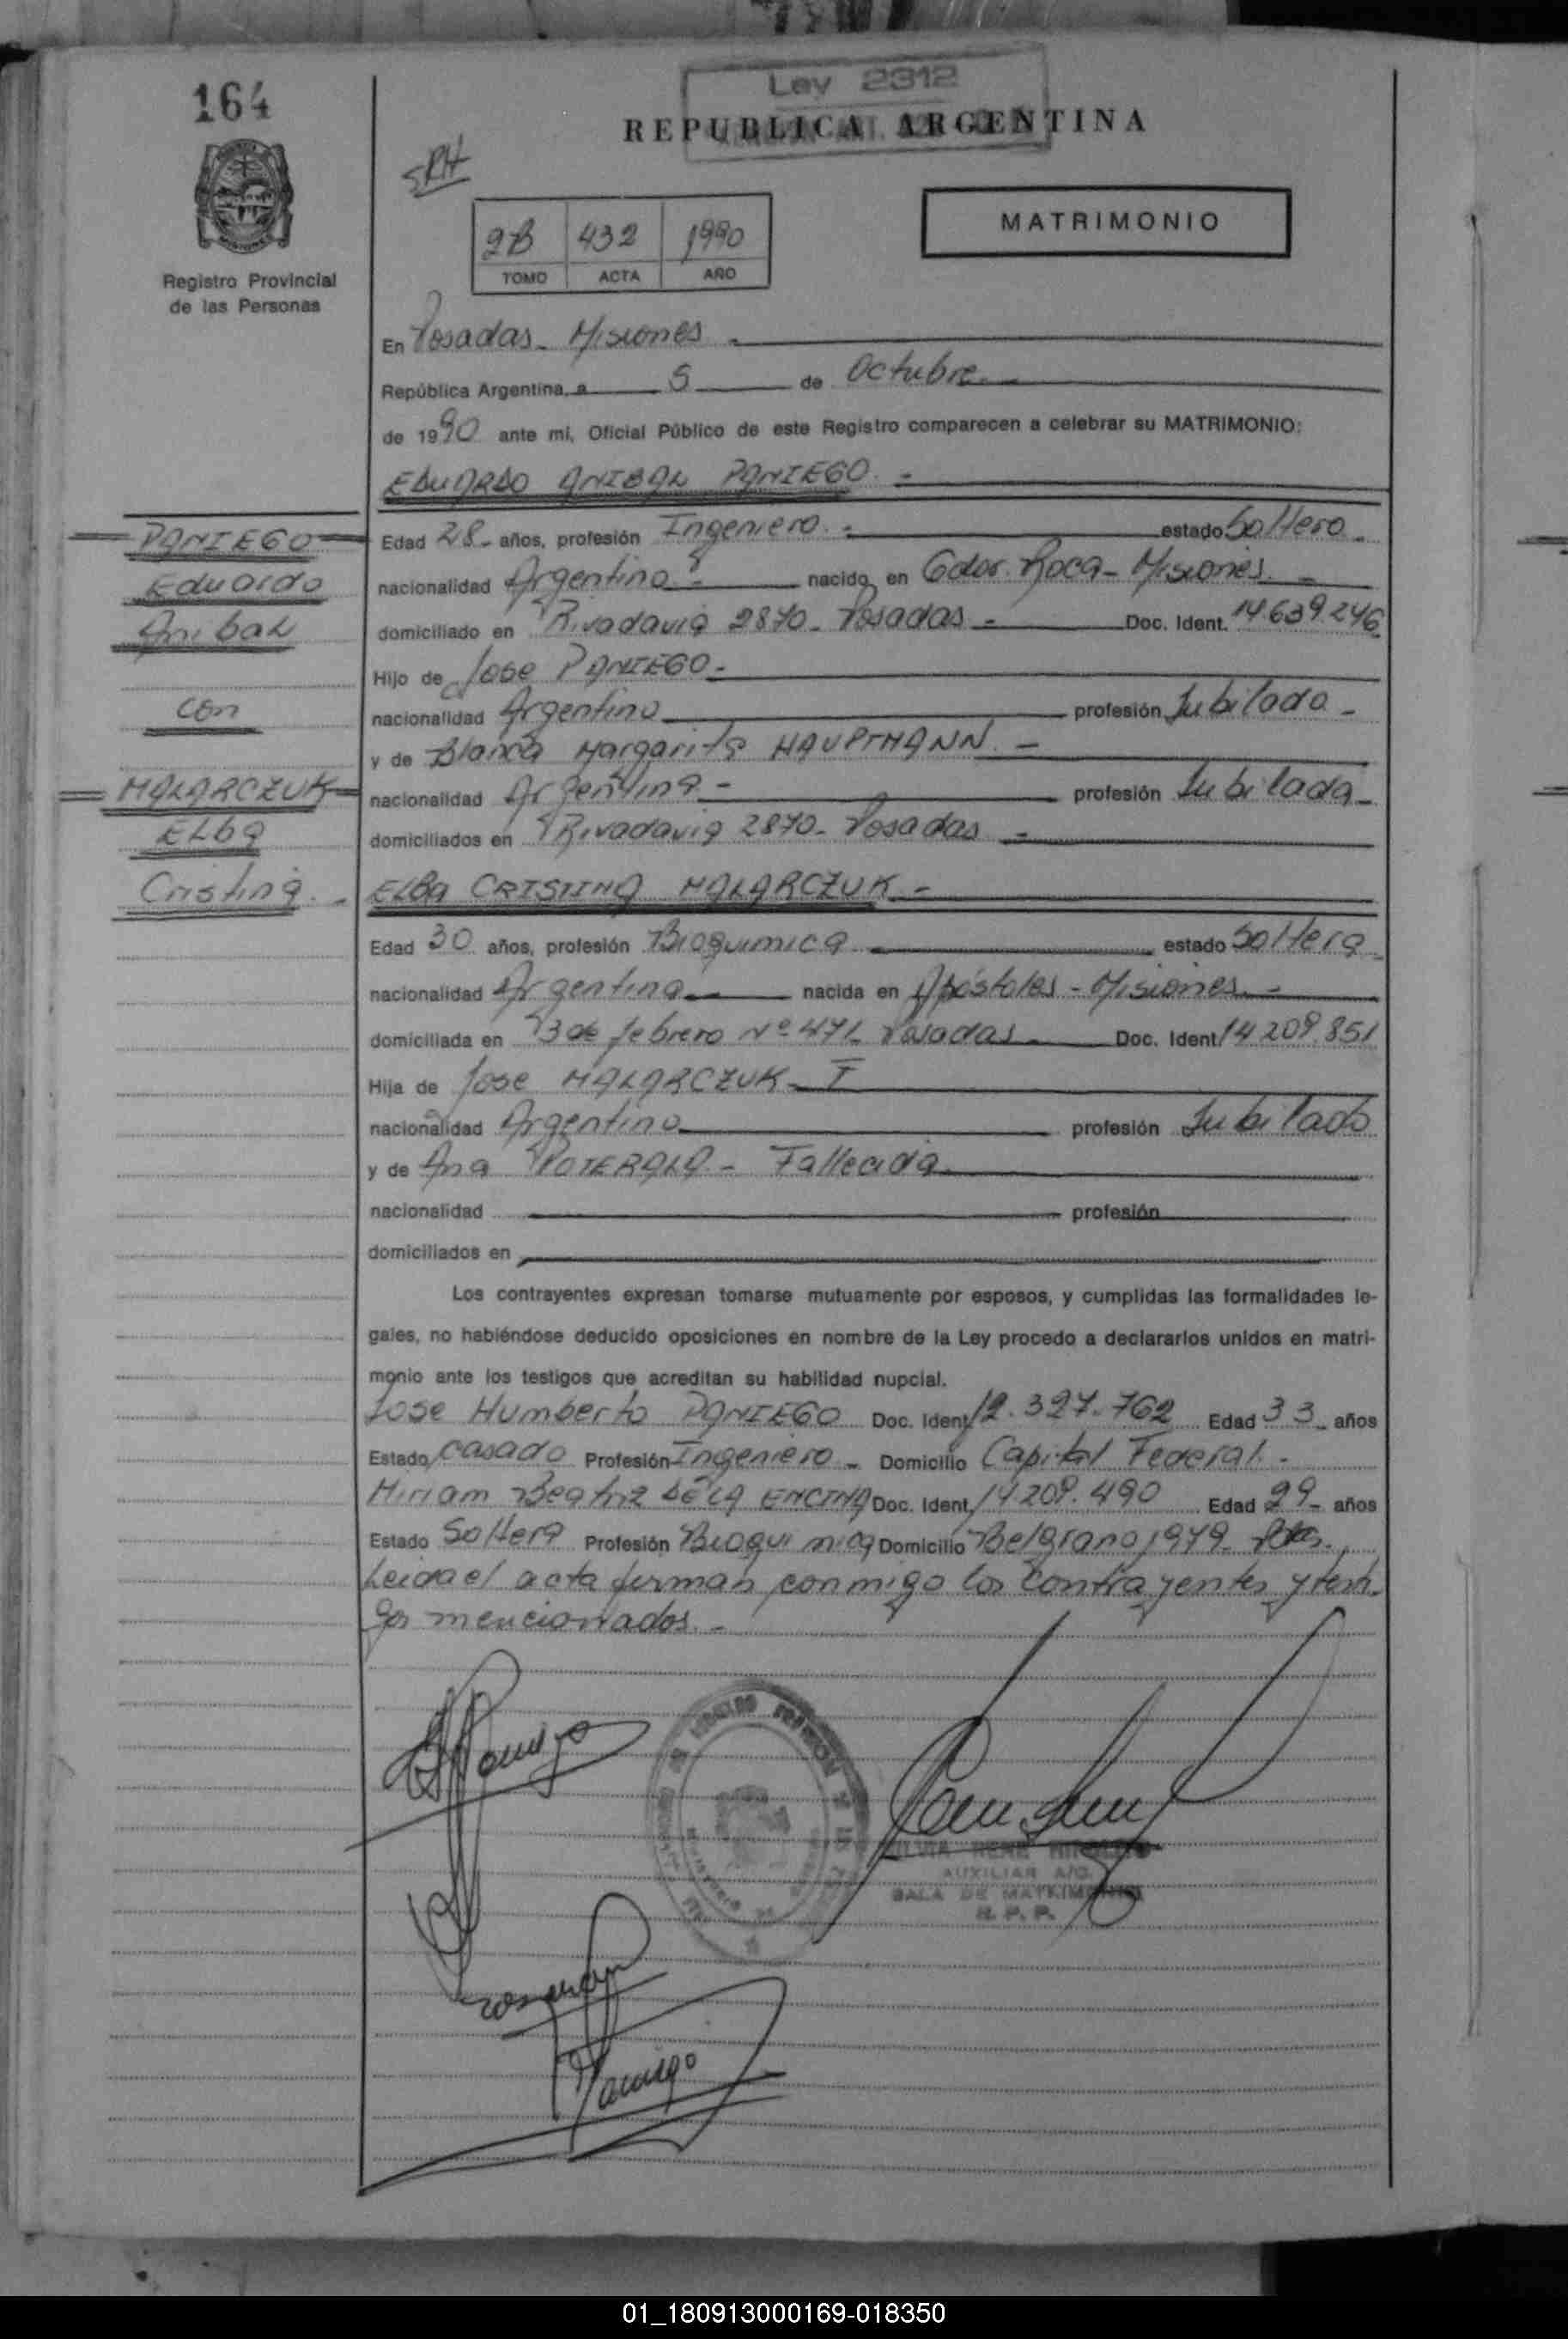 164
Ley 2312
REPUBLICA ARGENTINA
SRH
Registro Provincial
de las Personas
2B 432 1990
TOMO ACTA AÑO
MATRIMONIO
En Posadas - Misiones -
República Argentina, a 5 de Octubre
de 1990 ante mi, Oficial Público de este Registro comparecen a celebrar su MATRIMONIO:
EDUARDO ANIBAL PANIEGO. -
PANIEGO
Eduardo
Anibal
con
MALARCZUK
Elba
Cristina. -
Edad 28 - años, profesión Ingeniero. - estado Soltero -
nacionalidad Argentino - nacido en Gdor. Roca - Misiones. -
domiciliado en Rivadavia 2870 - Posadas - Doc. Ident. 14.639.246
Hijo de Jose PANIEGO -
nacionalidad Argentino profesión Jubilado -
y de Blanca Margarita HAUPTMANN. -
nacionalidad Argentina - profesión Jubilada -
domiciliados en Rivadavia 2870 - Posadas -
ELBA CRISTINA MALARCZUK -
Edad 30 años, profesión Bioquimica estado Soltera
nacionalidad Argentina nacida en Apóstoles - Misiones. -
domiciliada en 3 de febrero Nº 471 - Posadas - Doc. Ident 14.209.851
Hija de Jose MALARCZUK -
nacionalidad Argentino profesión Jubilado
y de Ana POTERALA - Fallecida
nacionalidad profesión
domiciliados en
Los contrayentes expresan tomarse mutuamente por esposos, y cumplidas las formalidades le-
gales, no habiéndose deducido oposiciones en nombre de la Ley procedo a declararlos unidos en matri-
monio ante los testigos que acreditan su habilidad nupcial.
Jose Humberto PANIEGO Doc. Ident. 12.327.762 Edad 33 - años
Estado casado Profesión Ingeniero - Domicilio Capital Federal. -
Miriam Beatriz DE LA ENCINA Doc. Ident. 14.209.490 Edad 29 - años
Estado Soltera Profesión Bioquimica Domicilio Belgrano 1979 - Pdas.
Leida el acta firman conmigo los contrayentes y testi-
gos mencionados. -
Paniego
SILVIA RENE
AUXILIAR A/C.
SALA DE MATRIMONIO
R. P. P.
Paniego
01_180913000169-018350